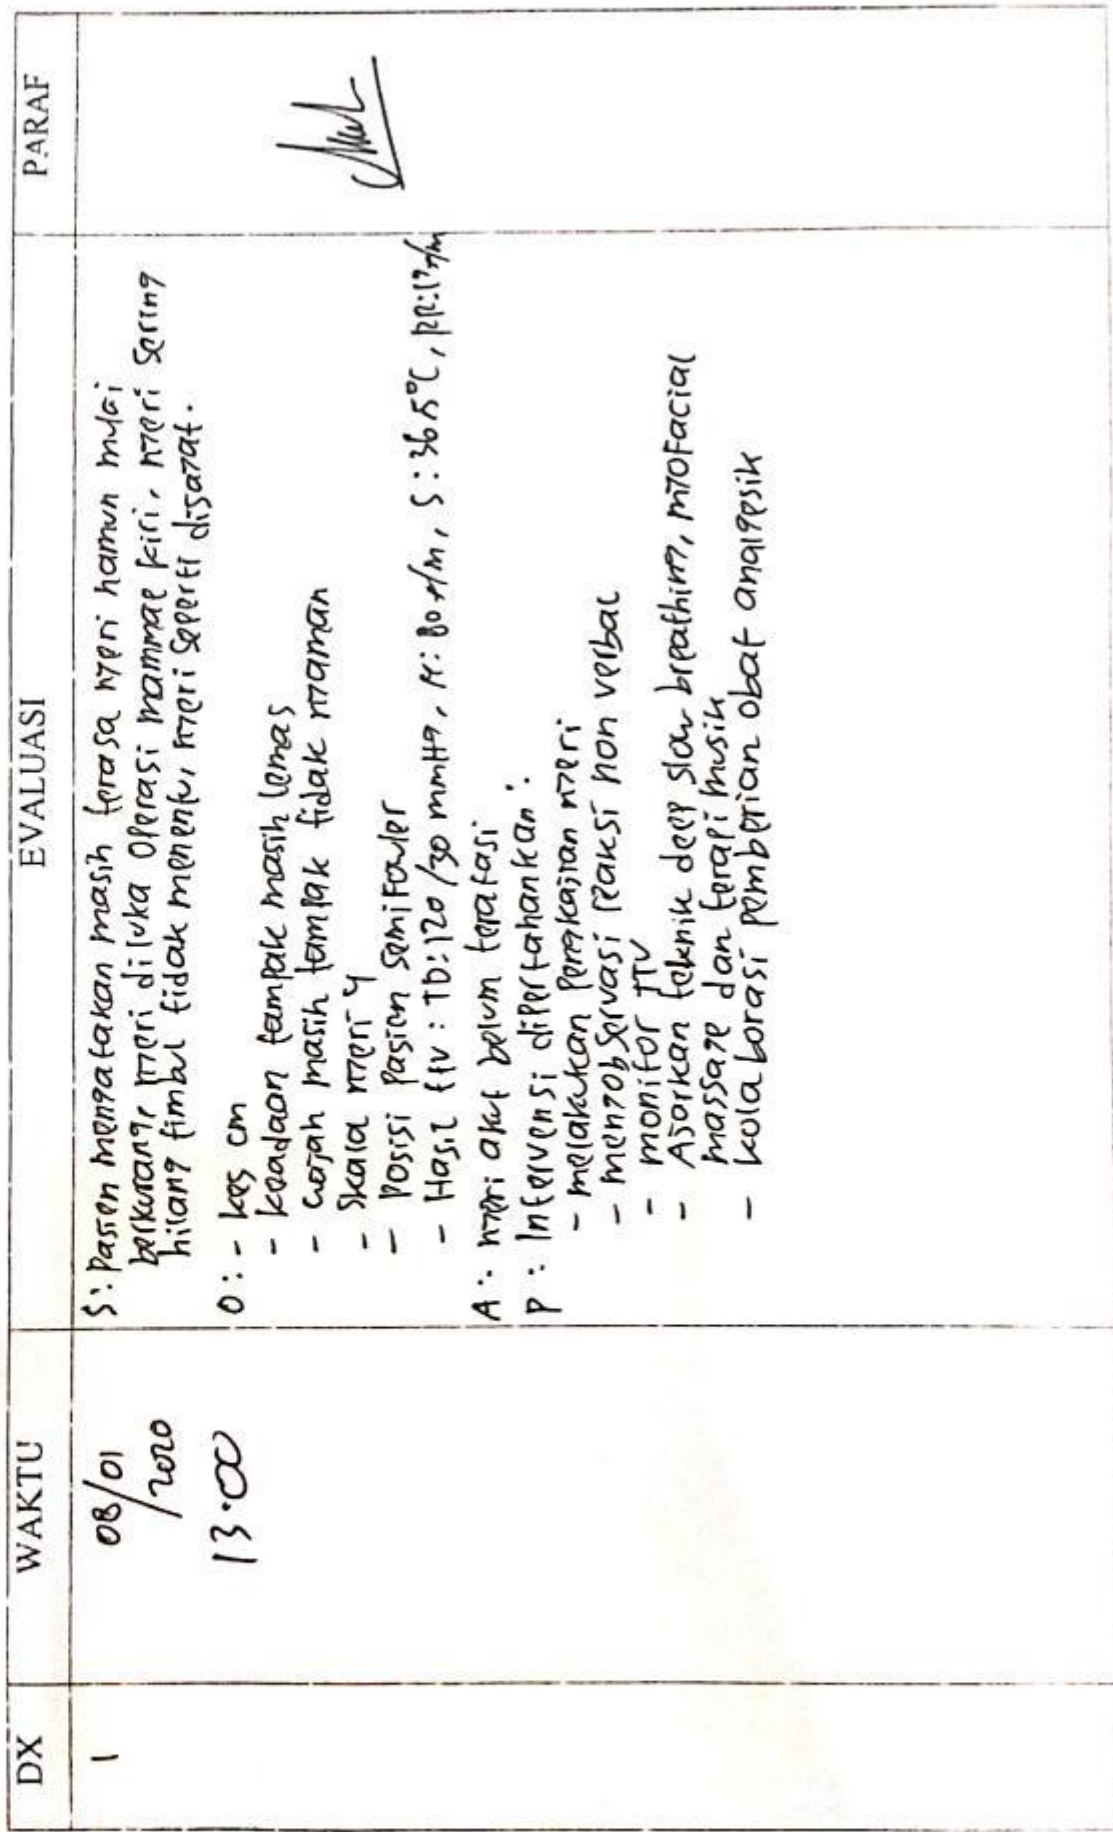 DX WAKTU EVALUASI PARAF
1
08/01
/2020
13.00
S: Pasien mengatakan masih terasa nyeri namun mulai
berkurang, nyeri di luka operasi mammae kiri, nyeri sering
hilang timbul tidak menentu, nyeri seperti disayat.
O: - kes cm
- keadaan tampak masih lemas
- wajah masih tampak tidak nyaman
- Skala nyeri 4
- Posisi pasien semifowler
- Hasil ttv : TD: 120/90 mmHg, N: 80 x/m, S: 36.5°C, RR: 19x/m
A: nyeri akut belum teratasi
P: Intervensi dipertahankan:
- melakukan pengkajian nyeri
- mengobservasi reaksi non verbal
- monitor TTV
- Ajarkan teknik deep slow breathing, myofacial
massage dan terapi musik
- kolaborasi pemberian obat analgesik